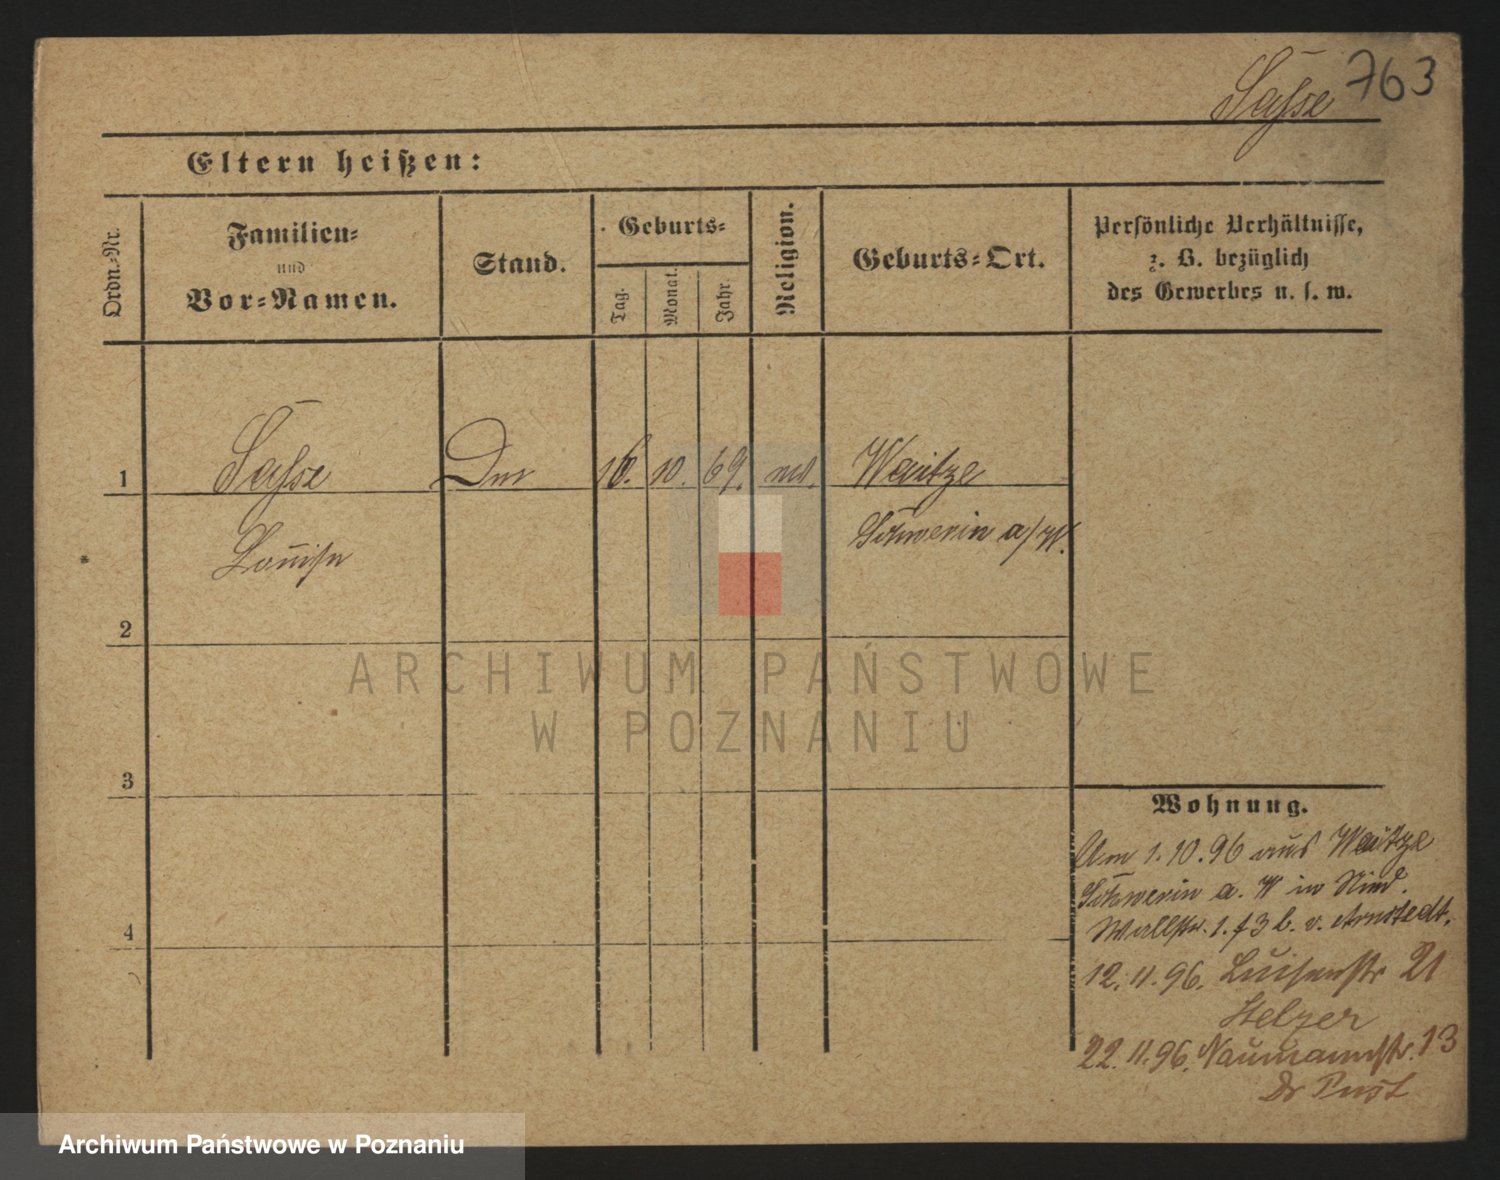 Sasse 763
Eltern heißen:
Ordn.-Nr.
Familien-
und
Vor-Namen.
Stand.
Geburts-
Tag.
Monat.
Jahr.
Religion.
Geburts-Ort.
Persönliche Verhältnisse,
z. B. bezüglich
des Gewerbes u. s. w.
1 Sasse 16. 10. 69. Waitze
Louise Schwerin a/W.
2
3
4
Wohnung.
Am 1.10.96 aus Waitze
Schwerin a. W in
Wallstr. 1. b. v. Arnstedt.
12.11.96. Luisenstr 21
Stelzer
22.11.96. Naumannstr. 13
Dr
ARCHIWUM PAŃSTWOWE
W POZNANIU
Archiwum Państwowe w Poznaniu